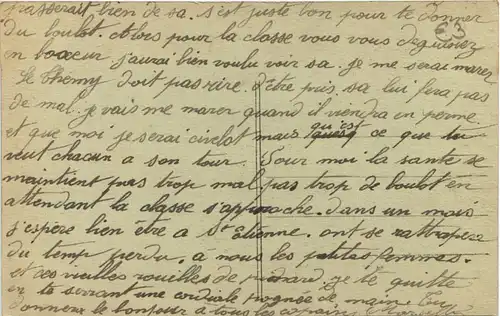 passerait bien de sa. s'est juste bon pour te donner
du boulot. Alors pour la classe vous vous déguisiez
en boxeur j'aurai bien voulu voir sa. je me serai marer
Le Themy doit pas rire. d'être puis, sa lui fera pas
de mal. je vais me marer quand il viendra en perme
et que moi je serai civelot mais qu'est ce que tu
veut chacun a son tour. Pour moi la santé se
maintient pas trop mal pas trop de boulot en
attendant la classe s'approche. dans un mois
j'espère bien être a St Etienne. ont se rattrapera
du temp perdu. a nous les petites femmes.
et ces vieilles rouilles de je te quitte
en te serrant une cordiale poignée de main. Tu
donnera le bonjour a tous les copains